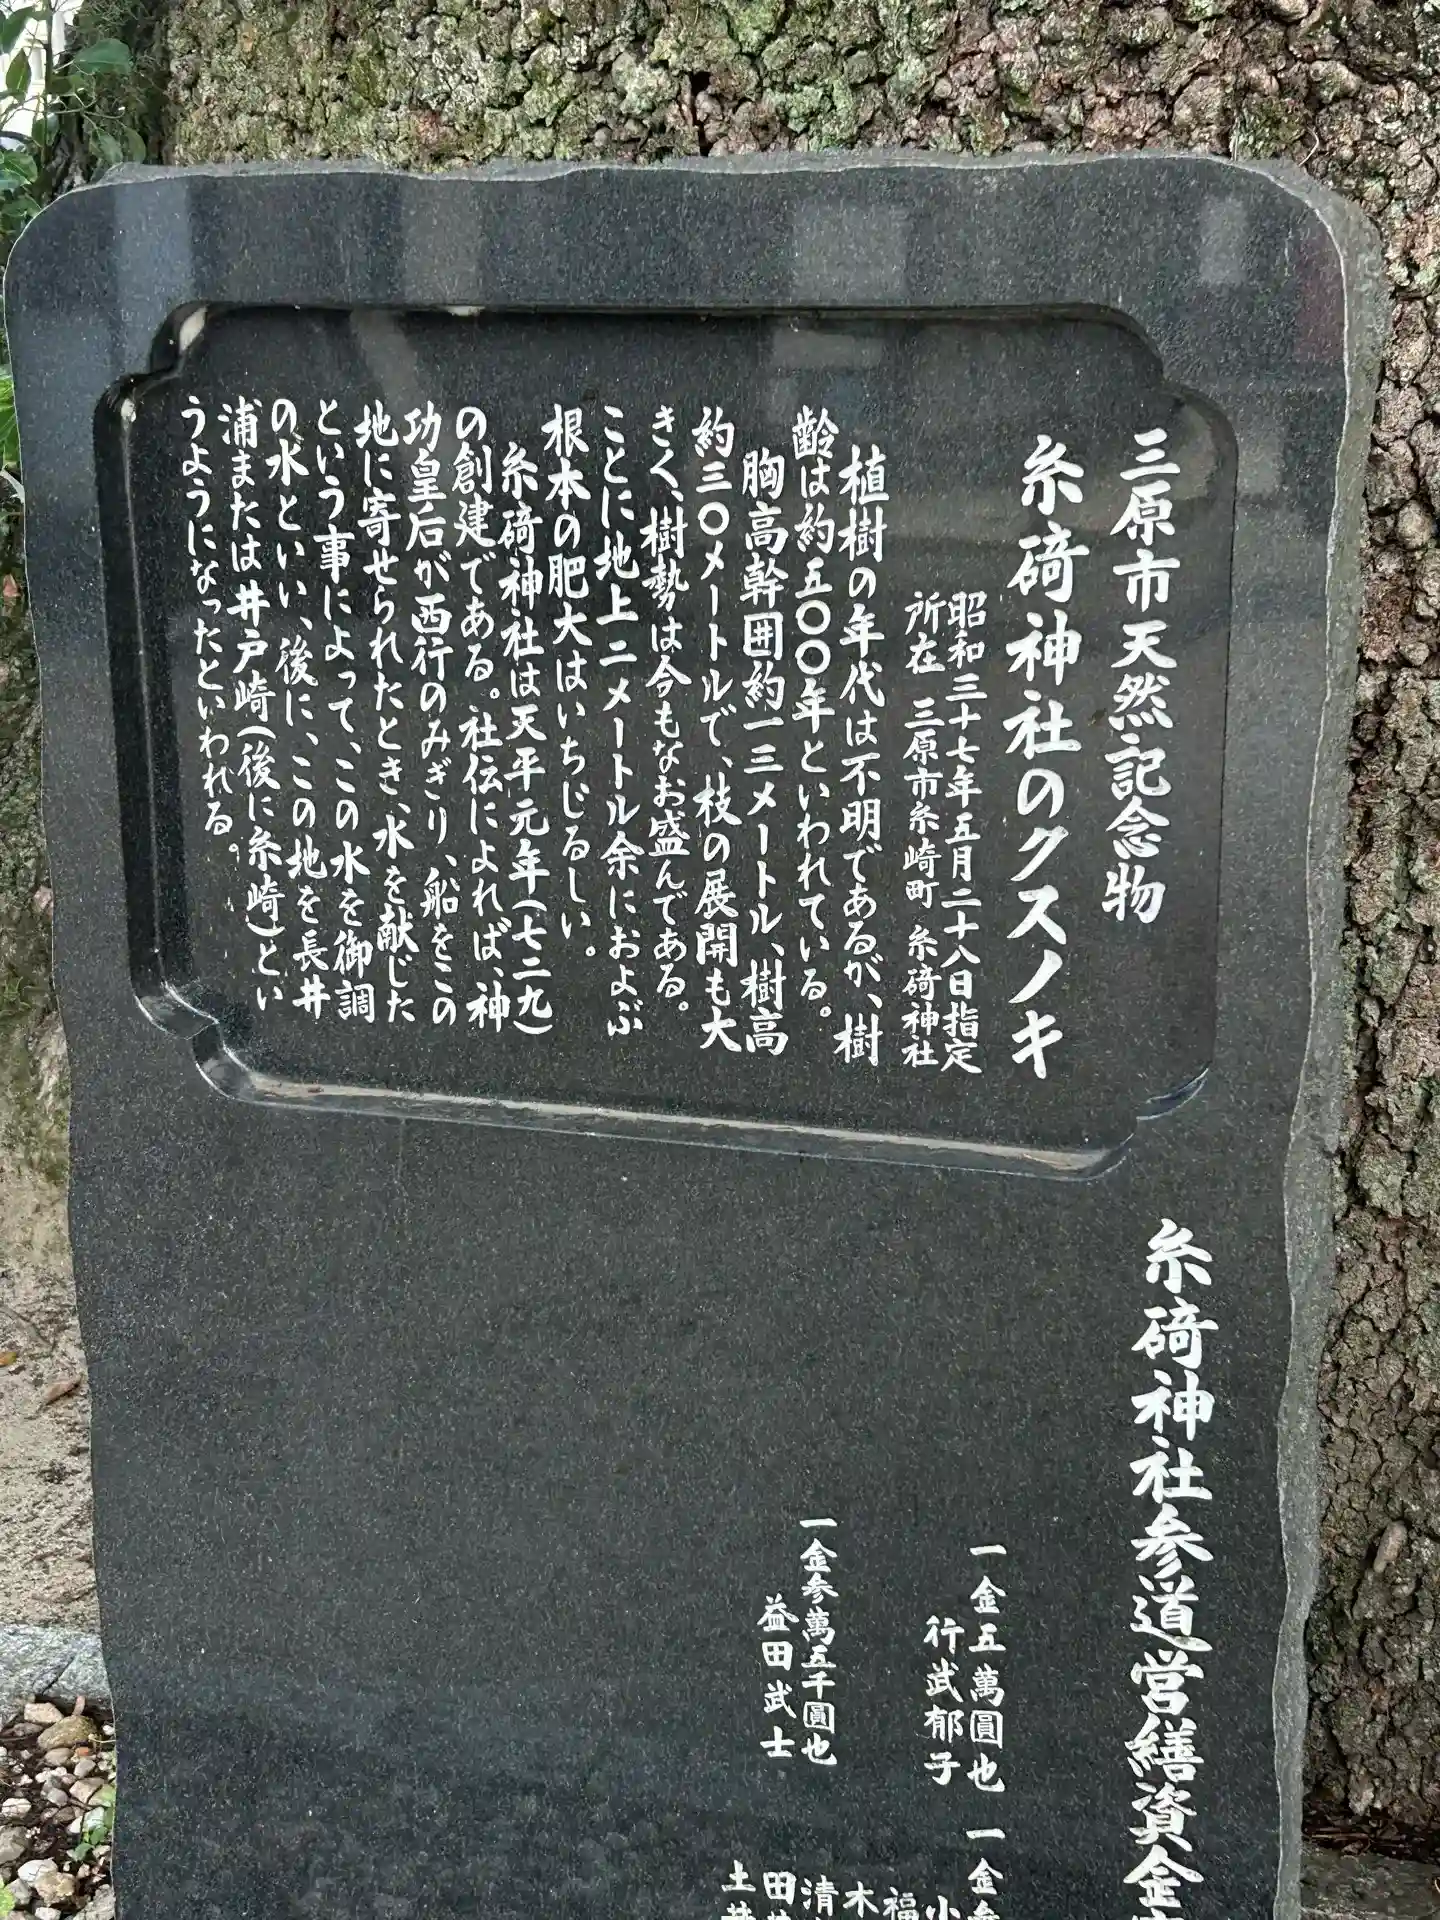 三原市天然記念物
糸碕神社のクスノキ
昭和三十七年五月二十八日指定
所在 三原市糸崎町 糸碕神社
植樹の年代は不明であるが、樹
齢は約五〇〇年といわれている。
胸高幹囲約一三メートル、樹高
約三〇メートルで、枝の展開も大
きく、樹勢は今もなお盛んである。
ことに地上二メートル余におよぶ
根本の肥大はいちじるしい。
糸碕神社は天平元年(七二九)
の創建である。社伝によれば、神
功皇后が西行のみぎり、船をこの
地に寄せられたとき、水を献じた
という事によって、この水を御調
の水といい、後に、この地を長井
浦または井戸崎(後に糸崎)とい
うようになったといわれる。
糸碕神社参道営繕資金
一金五萬圓也
行武郁子
一金参萬五千圓也
益田武士
一金
小
福
木
清
田
土